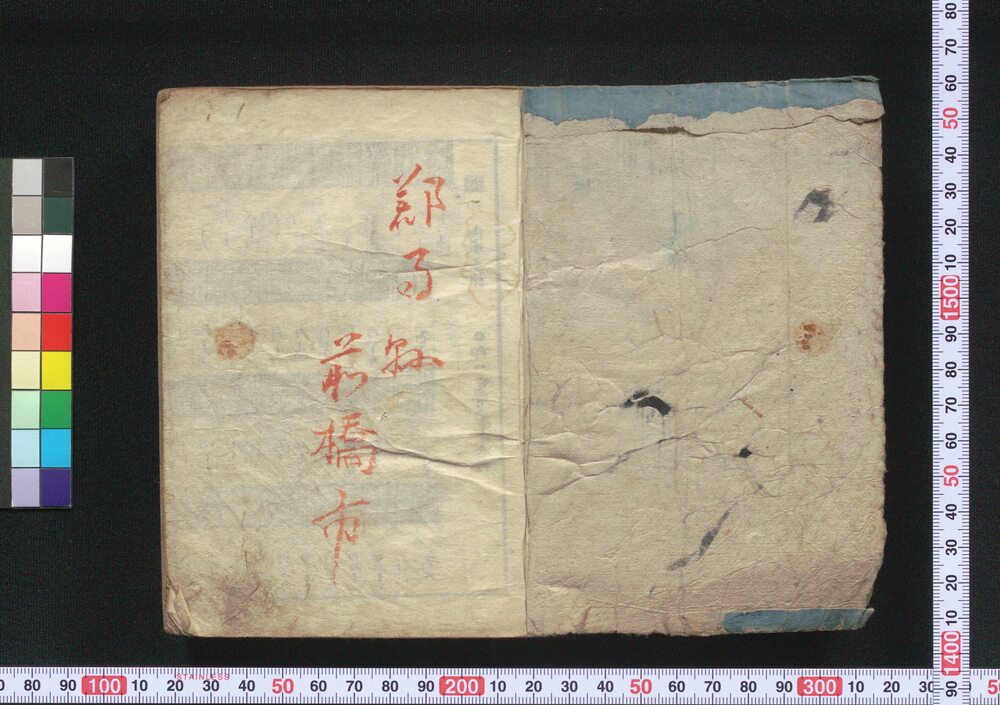 郡馬縣
前橋市
80 70 60 50 40 30 20 10 1500 90 80 70 60 50 40 30 20 10 1400 90
STAINLESS
80 90 100 10 20 30 40 50 60 70 80 90 200 10 20 30 40 50 60 70 80 90 300 10 20